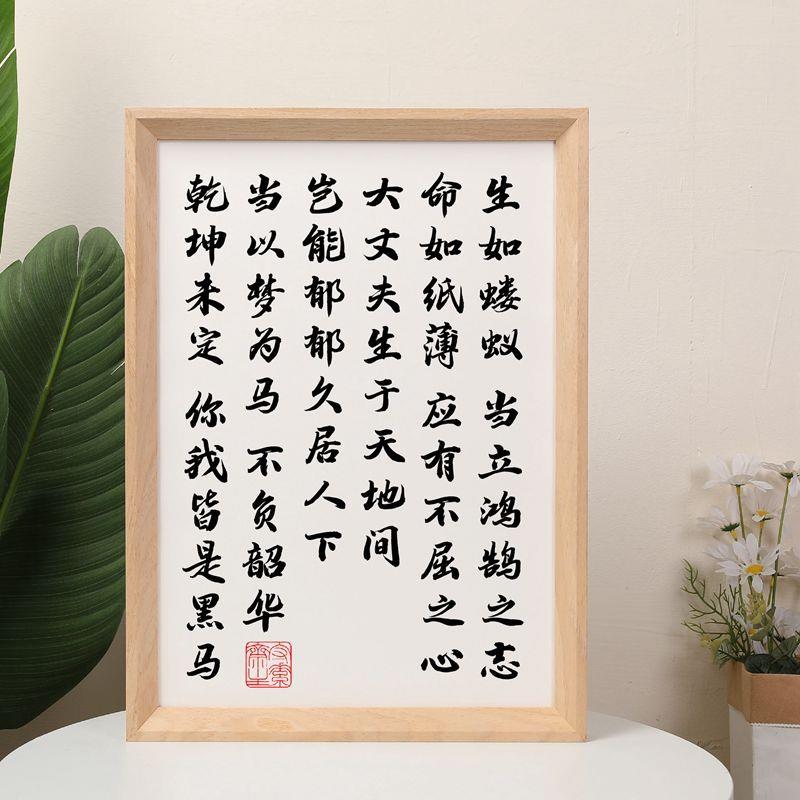 生如蝼蚁 当立鸿鹄之志
命如纸薄 应有不屈之心
大丈夫生于天地间
岂能郁郁久居人下
当以梦为马 不负韶华
乾坤未定 你我皆是黑马